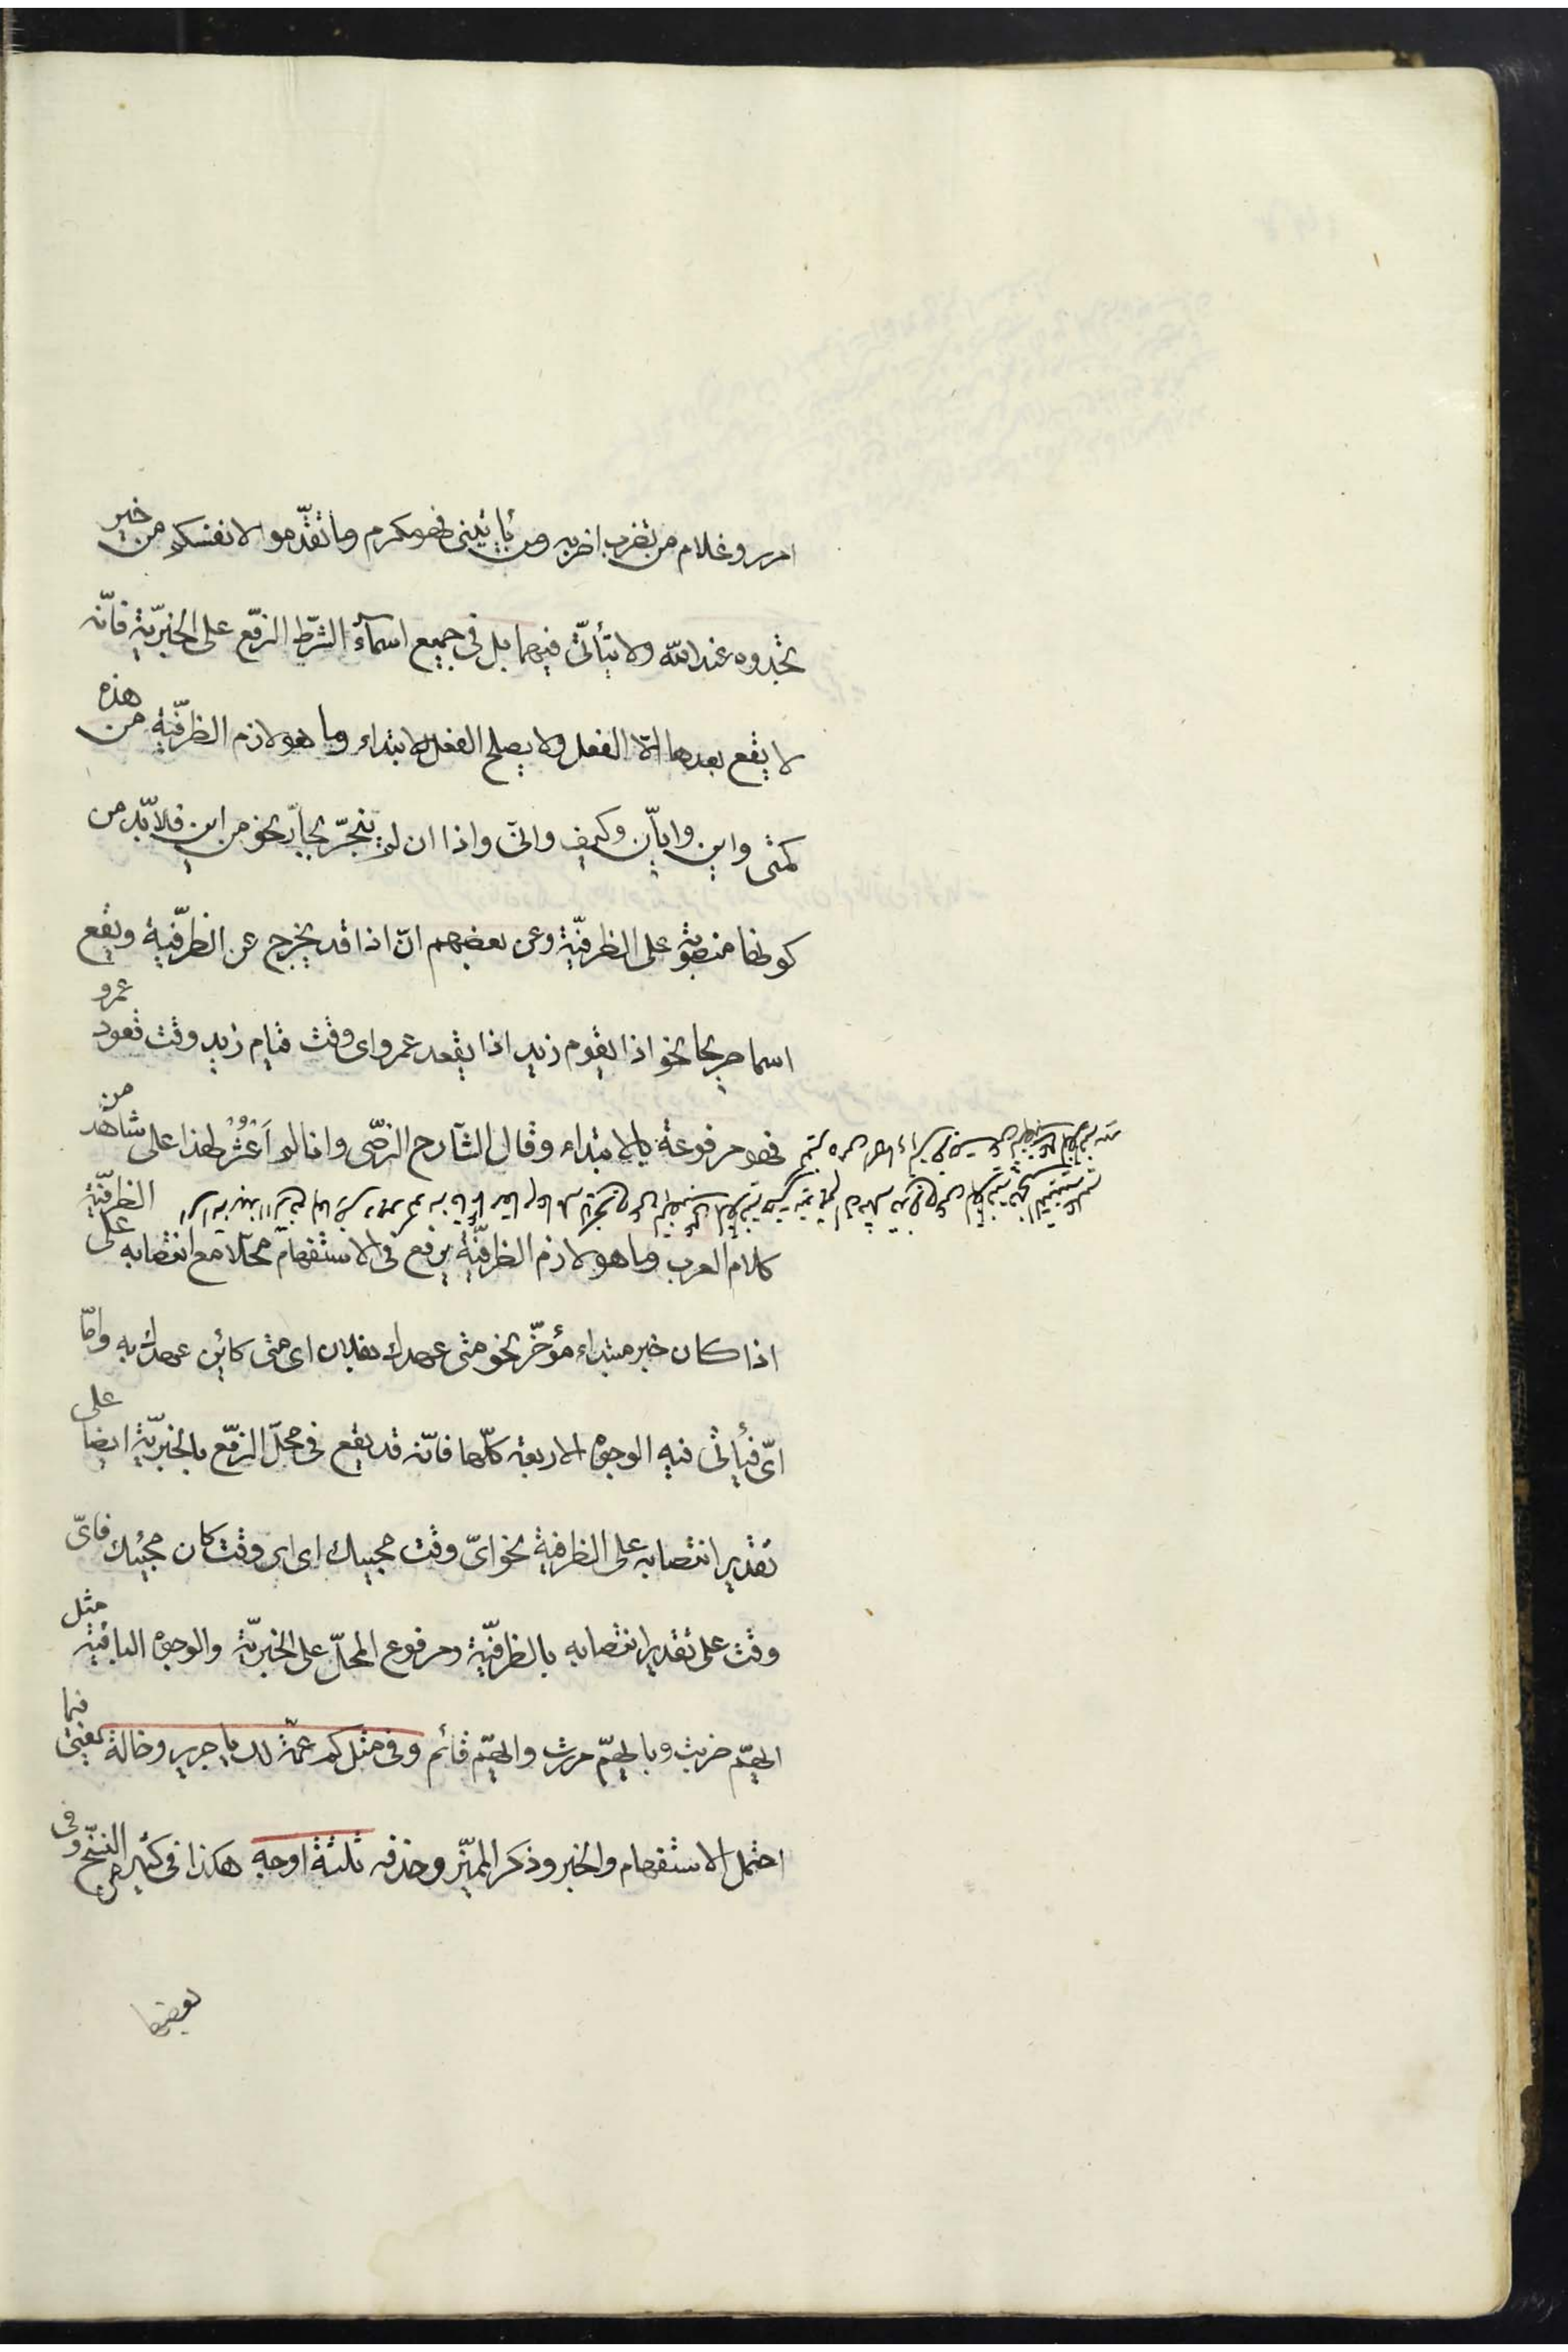 امرر وغلام من تضرب اضربه ومن يأتيني فهو مكرم وما تقدّموا لانفسكم من خير
تجدوه عند الله ولا يتأتّى فيهما بل في جميع اسمآء الشرط الرّفع على الخبريّة فانّه
لا يقع بعدها الّا الفعل ولا يصلح الفعل للابتداء وما هو لازم الظرفيّة من هذه
كمتى واين وايّان وكيف وانّى واذا ان لم ينجرّ بجارّ نحو من اين فلا بدّ من
كونها منصوبة على الظرفيّة وعن بعضهم انّ اذا قد يخرج عن الظرفيّة ويقع
اسما صريحا نحو اذا يقوم زيد اذا يقعد عمرو اى وقت قيام زيد وقت قعود عمرو
فهو مرفوعة بالابتداء وقال الشّارح الرّضّى وانا لم اَعْثُرْ لهذا على شاهد من
كلام العرب وما هو لازم الظرفيّة يرفع في الاستفهام محلّا مع انتصابه على الظرفيّة
اذا كان خبر مبتداء مؤخّر نحو متى عهدك بفلان اى متى كائن عهدك به وامّا
اىّ فيأتى فيه الوجوه الاربعة كلّها فانّه قد يقع فى محلّ الرّفع بالخبريّة ايضا على
تقدير انتصابه على الظرفية نحو اىّ وقت مجيئك اى اى وقت كان مجيئك فاىّ
وقت على تقدير انتصابه بالظرفيّة ومرفوع المحلّ على الخبريّة والوجوه الباقية مثل
ايّهم ضربت وبايّهم مررت وايّهم قائم وفى مثل كم عمّة لك يا جرير وخالة يعنى فيما
احتمل الاستفهام والخبر وذكر المميّز وحذفه ثلثة اوجه هكذا فى كثير من النسّخ وفى
بعضها